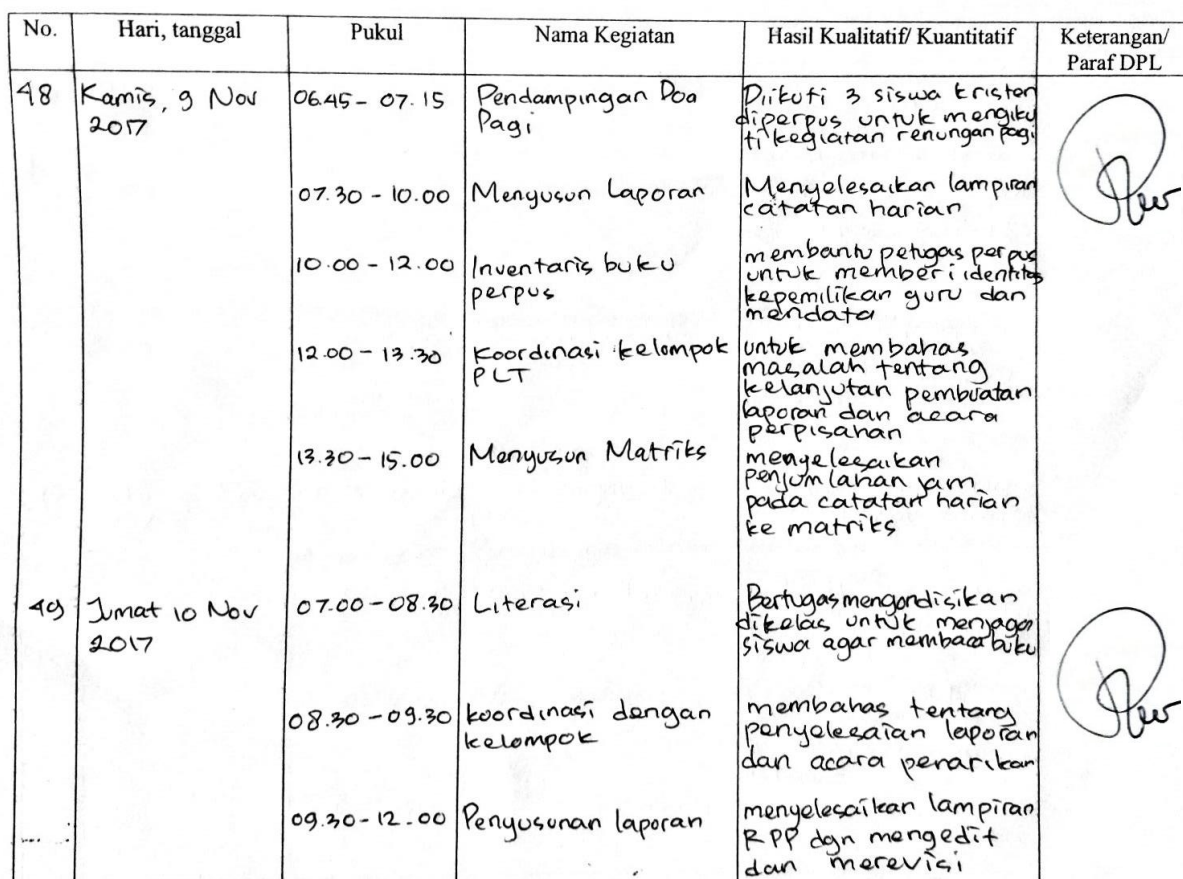 No. Hari, tanggal Pukul Nama Kegiatan Hasil Kualitatif/ Kuantitatif Keterangan/
Paraf DPL
48 Kamis, 9 Nov 06.45 - 07.15 Pendampingan Doa Diikuti 3 siswa kristen
2017 Pagi diperpus untuk mengiku
ti kegiatan renungan pagi
07.30 - 10.00 Menyusun Laporan Menyelesaikan lampiran
catatan harian
10.00 - 12.00 Inventaris buku membantu petugas perpus
perpus untuk memberi identitas
kepemilikan guru dan
mendata
12.00 - 13.30 Koordinasi kelompok untuk membahas
PLT masalah tentang
kelanjutan pembuatan
laporan dan acara
perpisahan
13.30 - 15.00 Menyusun Matriks menyelesaikan
penjumlahan jam
pada catatan harian
ke matriks
49 Jumat 10 Nov 07.00 - 08.30 Literasi Bertugas mengondisikan
2017 dikelas untuk menjaga
siswa agar membaca buku
08.30 - 09.30 koordinasi dengan membahas tentang
kelompok penyelesaian laporan
dan acara penarikan
09.30 - 12.00 Penyusunan laporan menyelesaikan lampiran
RPP dgn mengedit
dan merevisi